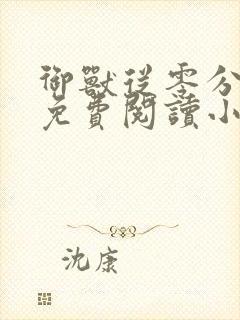 御獸從零分
免費閱讀小
沈康